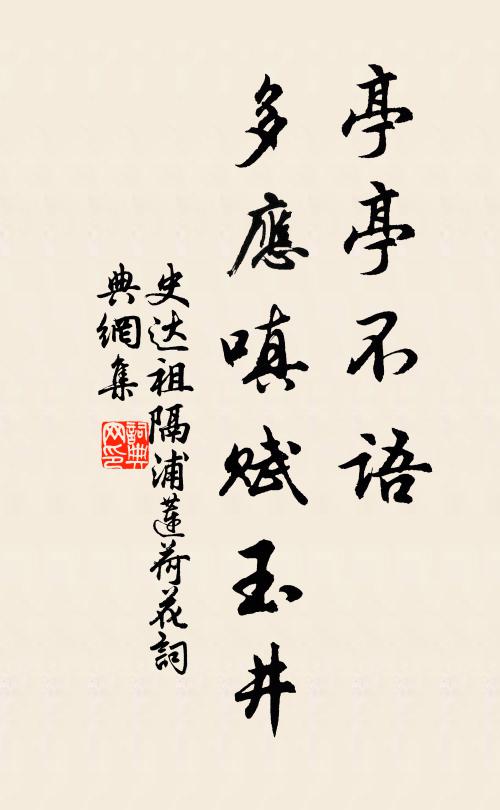 亭亭不語
多應嗔賦玉井
史达祖隔浦蓮荷花詞
典網集
詞典
网印